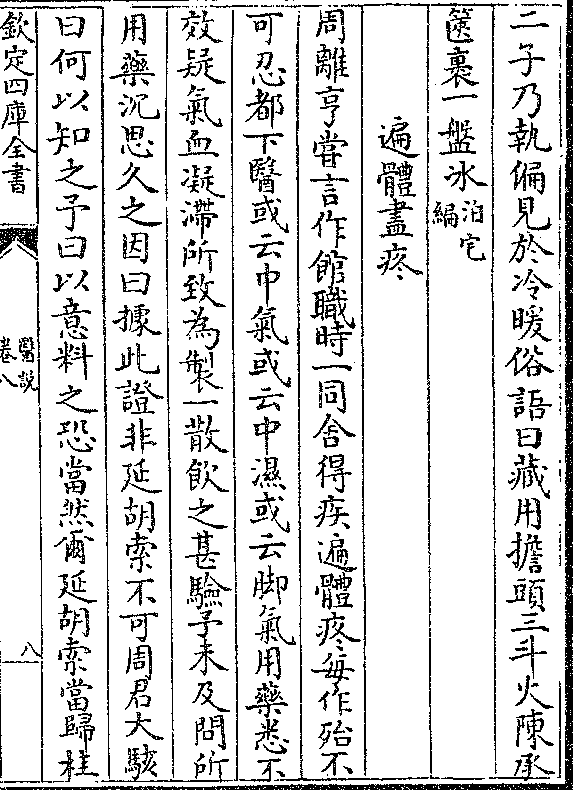 二子乃執偏見於冷暖俗語曰藏用擔頭三斗火陳承
篋裏一盤冰泊宅
編
遍體盡疼
周離亨嘗言作館職時一同舍得疾遍體疼每作殆不
可忍都下醫或云中氣或云中濕或云脚氣用藥悉不
效疑氣血凝滯所致為製一散飲之甚驗予未及問所
用藥沉思久之因曰據此證非延胡索不可周君大駭
曰何以知之予曰以意料之恐當然爾延胡索當歸桂
欽定四庫全書
醫說
卷八
八